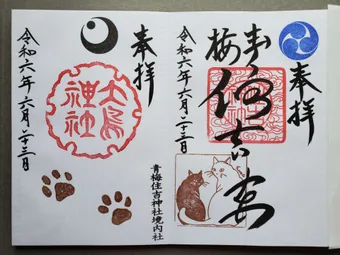 奉拝
青梅
住吉宮
令和六年六月二十三日
奉拝
大鳥
神社
令和六年六月二十三日
青梅住吉神社境内社